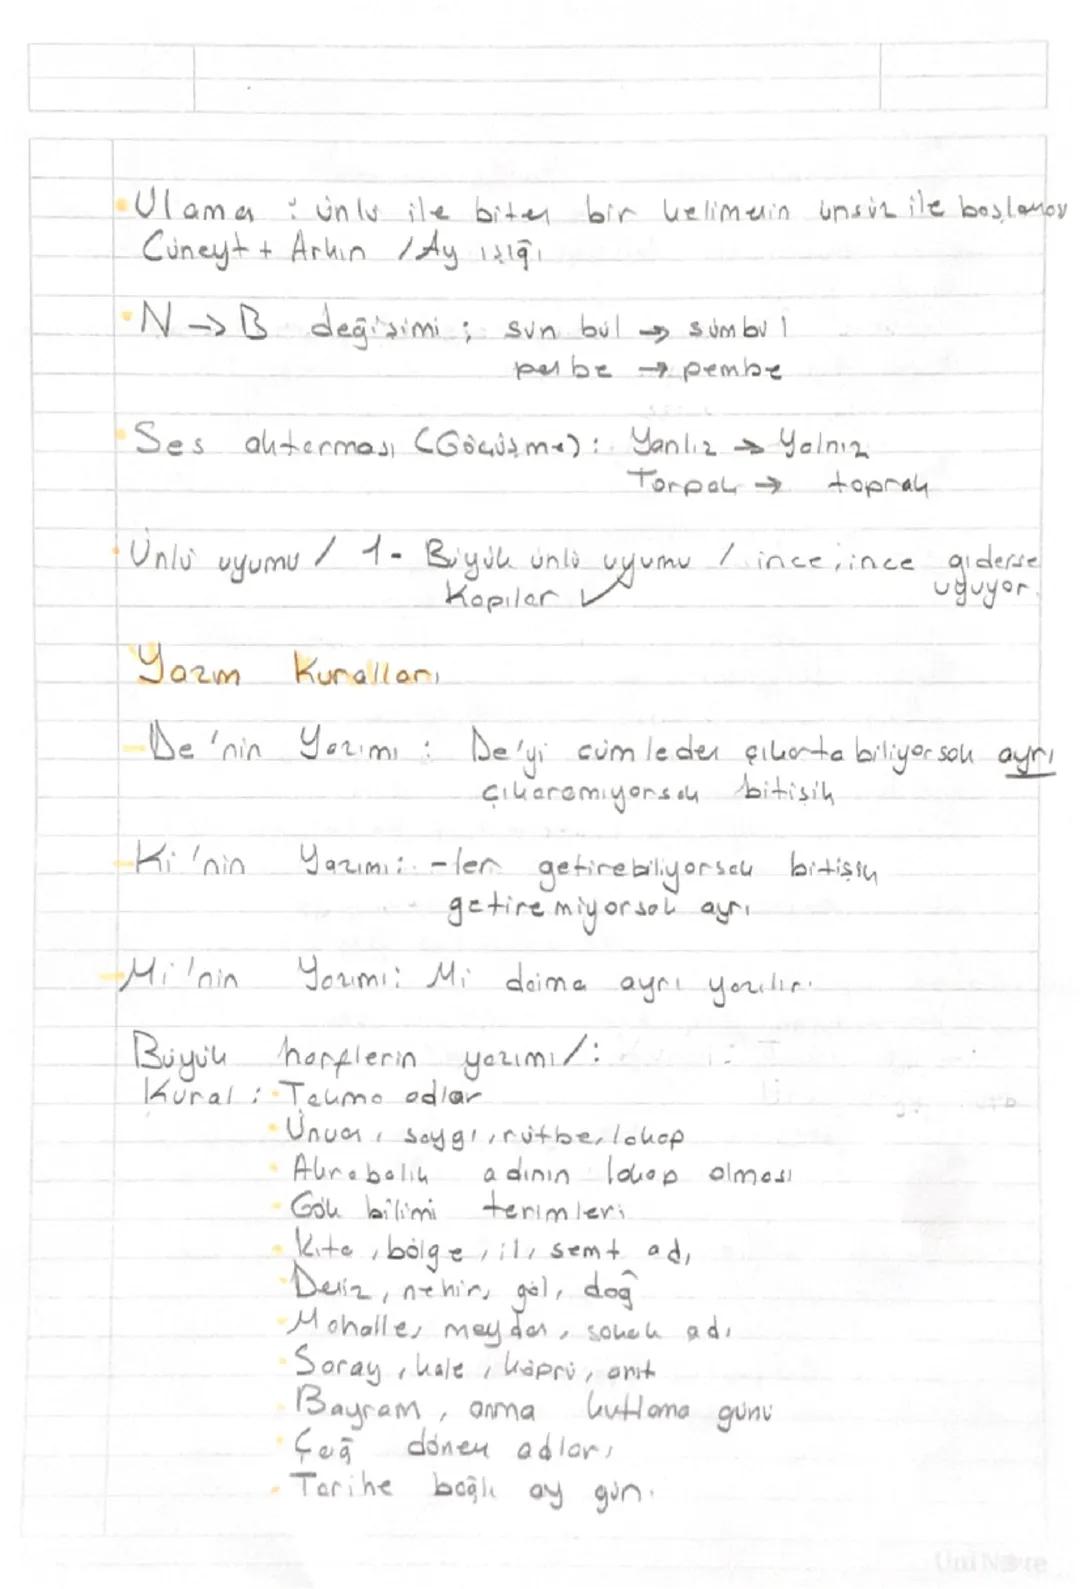 Ulama : ünlü ile biten bir kelimenin ünsüz ile başlaması
Cüneyt + Arkın / Ay ışığı
N → B değişimi ; sün bül → sümbül
penbe → pembe
Ses aktarması (Göçüşme) : Yanlız → Yalnız
Torpak → toprak
Ünlü uyumu / 1- Büyük ünlü uyumu / ince, ince giderse
Kapılar ✓ uyuyor.
Yazım Kuralları
- De 'nin Yazımı : De'yi cümleden çıkartabiliyorsak ayrı
çıkaramıyorsak bitişik
- Ki 'nin Yazımı : -ler getirebiliyorsak bitişik
getiremiyorsak ayrı
- Mi 'nin Yazımı : Mi daima ayrı yazılır.
Büyük harflerin yazımı / :
Kural : Takma adlar
Unvan, saygı, rütbe, lakap
Akrabalık adının lakap olması
Gök bilimi terimleri
Kıta, bölge, il, semt adı
Deniz, nehir, göl, dağ
Mahalle, meydan, sokak adı
Saray, kale, köprü, anıt
Bayram, anma kutlama günü
Çağ dönem adları
Tarihe bağlı ay gün.
Uni Note